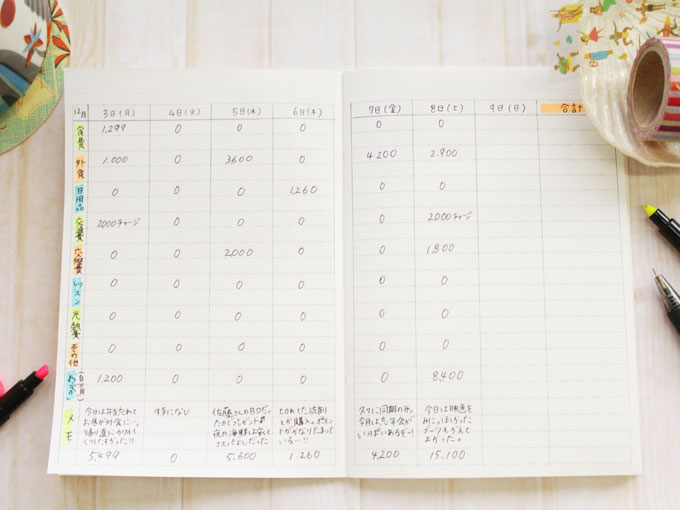 12月 3日(月) 4日(火) 5日(水) 6日(木) 7日(金) 8日(土) 9日(日) 合計
食費 1,299 0 0 0 0 0
外食 1,000 0 3,600 0 4,200 2,900
日用品 0 0 0 1,260 0 0
交通費 2000チャージ 0 0 0 0 2000チャージ
交際費 0 0 2,000 0 0 1,800
レッスン 0 0 0 0 0 0
光熱費 0 0 0 0 0 0
その他 0 0 0 0 0 0
1,200 0 0 0 0 8,400
メモ
今日は弁当忘れて
お昼が外食に…。
帰り道に
特になし
佐藤さんのBDだっ
たのでプレゼント
夜の海鮮は安くて
コスパよしだった
切れてた洗剤
とか購入。ポイント
がかなりたまって
いる…!!
久々に同期のみ。
今月は忘年会が
いっぱいあるぞー!
今日は映画を
よかった。
5,499 0 5,600 1,260 4,200 15,100